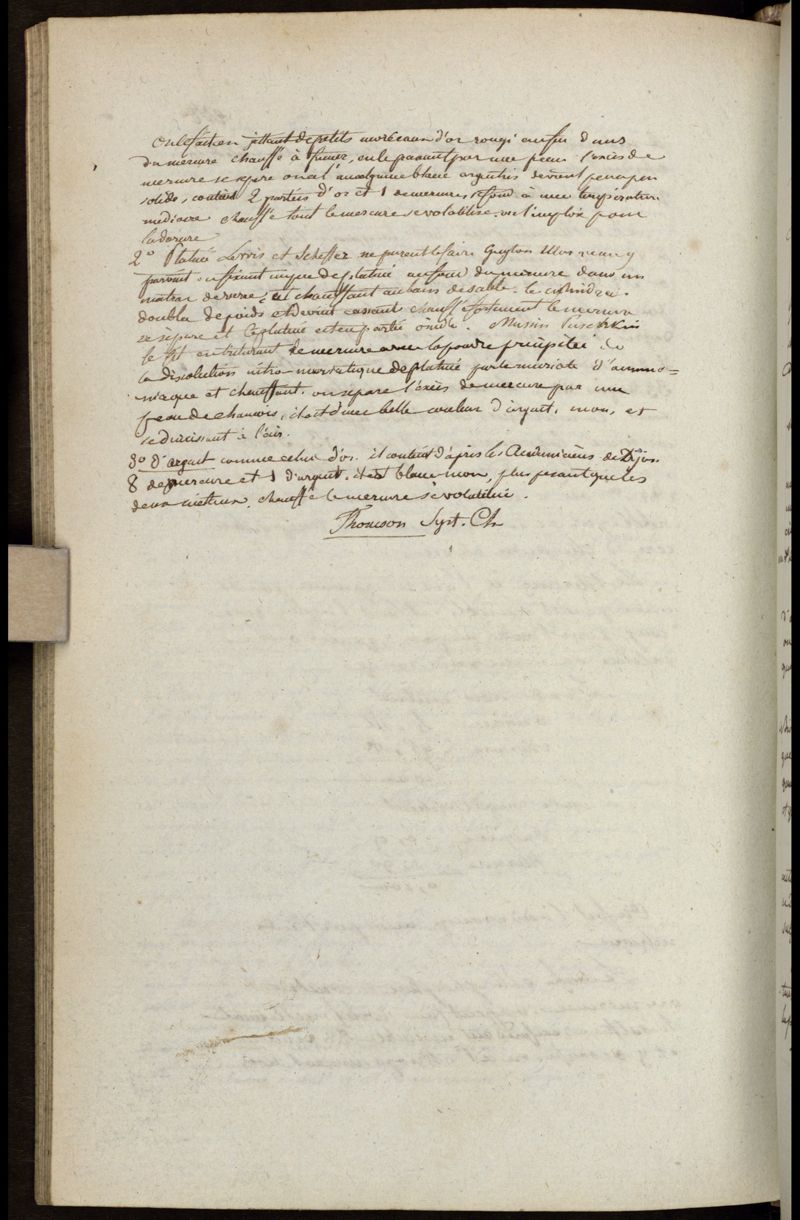 on le fait en jettant de petits morceaux d'or rougi au feu dans
du mercure chauffé à fumer, en le passant par une peau l'excès de
mercure se separe on a l'amalgame blanc argentin devient peu a peu
solide, contient 2 parties d'or et 1 de mercure, se fond à une temperature
mediocre chauffé tout le mercure se volatilise, on l'employe pour
la dorure
2º Platine Lewis et Scheffer ne purent le faire Guyton Morveau y
parvint en fixant de platine au fond du mercure dans un
matras de verre, et chauffant au bain de sable. le cylindre
doubla de poids et devint cassant chauffé fortement le mercure
se separe et le platine est en partie oxidé. Mussin Puschkin
le fit en triturant le mercure avec la poudre précipitée de
la dissolution nitro-muriatique de platine par le muriate d'ammo=
niaque et chauffant. on separe l'excès de mercure par une
peau de chamois, il est d'une belle couleur d'argent, mou, et
se durcissant à l'air.
3º d'argent comme celui d'or. il contient d'après les Académiciens de Dijon
8 de mercure et 1 d'argent. il est blanc mou, plus pesant que les
deux metaux. chauffé le mercure se volatilise.
Thomson Syst. Ch